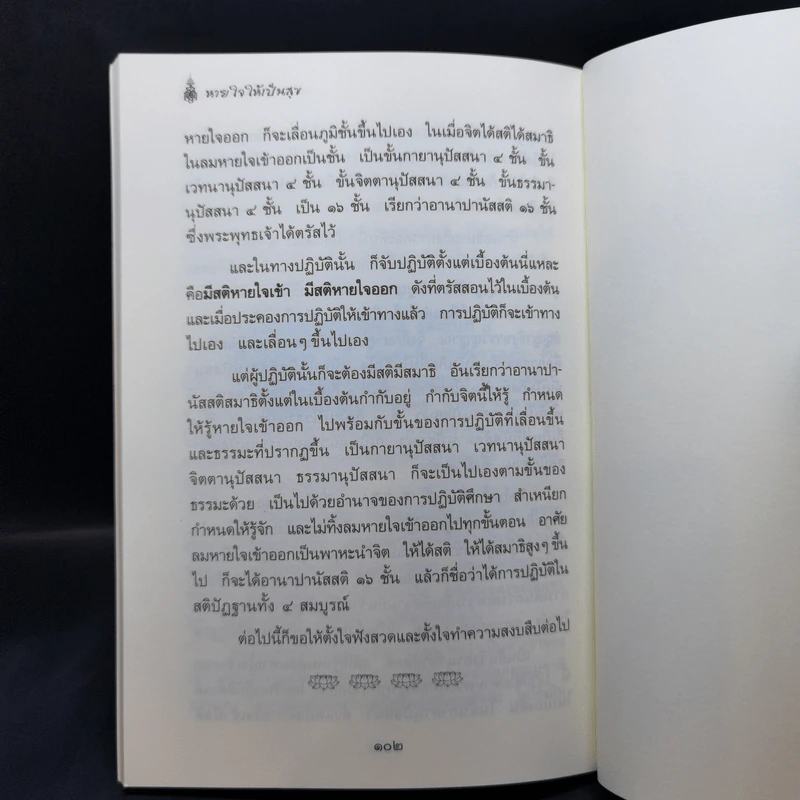 หายใจให้เป็นสุข
หายใจออก ก็จะเลื่อนภูมิชั้นขึ้นไปเอง ในเมื่อจิตได้สติได้สมาธิ
ในลมหายใจเข้าออกเป็นชั้น เป็นขั้นกายานุปัสสนา ๔ ชั้น ขั้น
เวทนานุปัสสนา ๔ ชั้น ขั้นจิตตานุปัสสนา ๔ ชั้น ขั้นธรรมา-
นุปัสสนา ๔ ชั้น เป็น ๑๖ ชั้น เรียกว่าอานาปานัสสติ ๑๖ ชั้น
ซึ่งพระพุทธเจ้าได้ตรัสไว้
และในทางปฏิบัตินั้น ก็จับปฏิบัติตั้งแต่เบื้องต้นนี่แหละ
คือมีสติหายใจเข้า มีสติหายใจออก ดังที่ตรัสสอนไว้ในเบื้องต้น
และเมื่อประคองการปฏิบัติให้เข้าทางแล้ว การปฏิบัติก็จะเข้าทาง
ไปเอง และเลื่อนๆ ขึ้นไปเอง
แต่ผู้ปฏิบัตินั้นก็จะต้องมีสติมีสมาธิ อันเรียกว่าอานาปา-
นัสสติสมาธิตั้งแต่ในเบื้องต้นกำกับอยู่ กำกับจิตนี้ให้รู้ กำหนด
ให้รู้หายใจเข้าออก ไปพร้อมกับขั้นของการปฏิบัติที่เลื่อนขึ้น
และธรรมะที่ปรากฏขึ้น เป็นกายานุปัสสนา เวทนานุปัสสนา
จิตตานุปัสสนา ธรรมานุปัสสนา ก็จะเป็นไปเองตามขั้นของ
ธรรมะด้วย เป็นไปด้วยอำนาจของการปฏิบัติศึกษา สำเหนียก
กำหนดให้รู้จัก และไม่ทิ้งลมหายใจเข้าออกไปทุกขั้นตอน อาศัย
ลมหายใจเข้าออกเป็นพาหะนำจิต ให้ได้สติ ให้ได้สมาธิสูงๆ ขึ้น
ไป ก็จะได้อานาปานัสสติ ๑๖ ชั้น แล้วก็ชื่อว่าได้การปฏิบัติใน
สติปัฏฐานทั้ง ๔ สมบูรณ์
ต่อไปนี้ก็ขอให้ตั้งใจฟังสวดและตั้งใจทำความสงบสืบต่อไป
๑๐๒